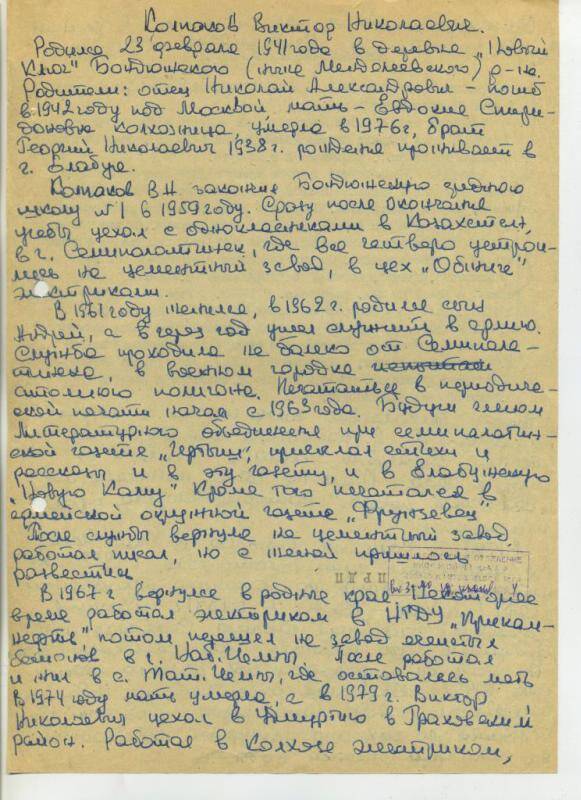 Колпаков Виктор Николаевич.
Родился 23 февраля 1941 года в деревне „Новый
Ключ" Бондюжского (ныне Менделеевского) р-на.
Родители: отец Николай Александрович - погиб
в 1942 году под Москвой, мать - Евдокия Спири-
доновна колхозница, умерла в 1976г, брат
Георгий Николаевич 1938г. рождения проживает в
г. Елабуге.
Колпаков В.Н. закончил Бондюжскую среднюю
школу №1 в 1959 году. Сразу после окончания
учебы уехал с одноклассниками в Казахстан,
в г. Семипалатинск, где все четверо устрои-
лись на цементный завод, в цех „Обжига"
электриками.
В 1961 году женился, в 1962г. родился сын
Андрей, а через год ушел служить в армию.
Служба проходила не далеко от Семипала-
тинска, в военном городке
атомного полигона. Печататься в периодиче-
ской печати начал с 1963 года. Будучи членом
литературного объединения при семипалатин-
ской газете „Иртыш", присылал стихи и
рассказы и в эту газету, и в Елабужскую
„Новую Каму" Кроме того печатался в
армейской окружной газете „Фрунзевец"
После службы вернулся на цементный завод.
работал писал, но с женой пришлось
развестись
В 1967 г вернулся в родные края Некоторое
время работал электриком в НГДУ „Прикам-
нефть", потом перешел на завод ячеистых
бетонов в г. Наб. Челны. После работал
и жил в с. Тат. Челны, где оставалась мать
В 1974 году мать умерла, а в 1979 г. Виктор
Николаевич уехал в Удмуртию в Граховский
район. Работал в колхозе электриком,